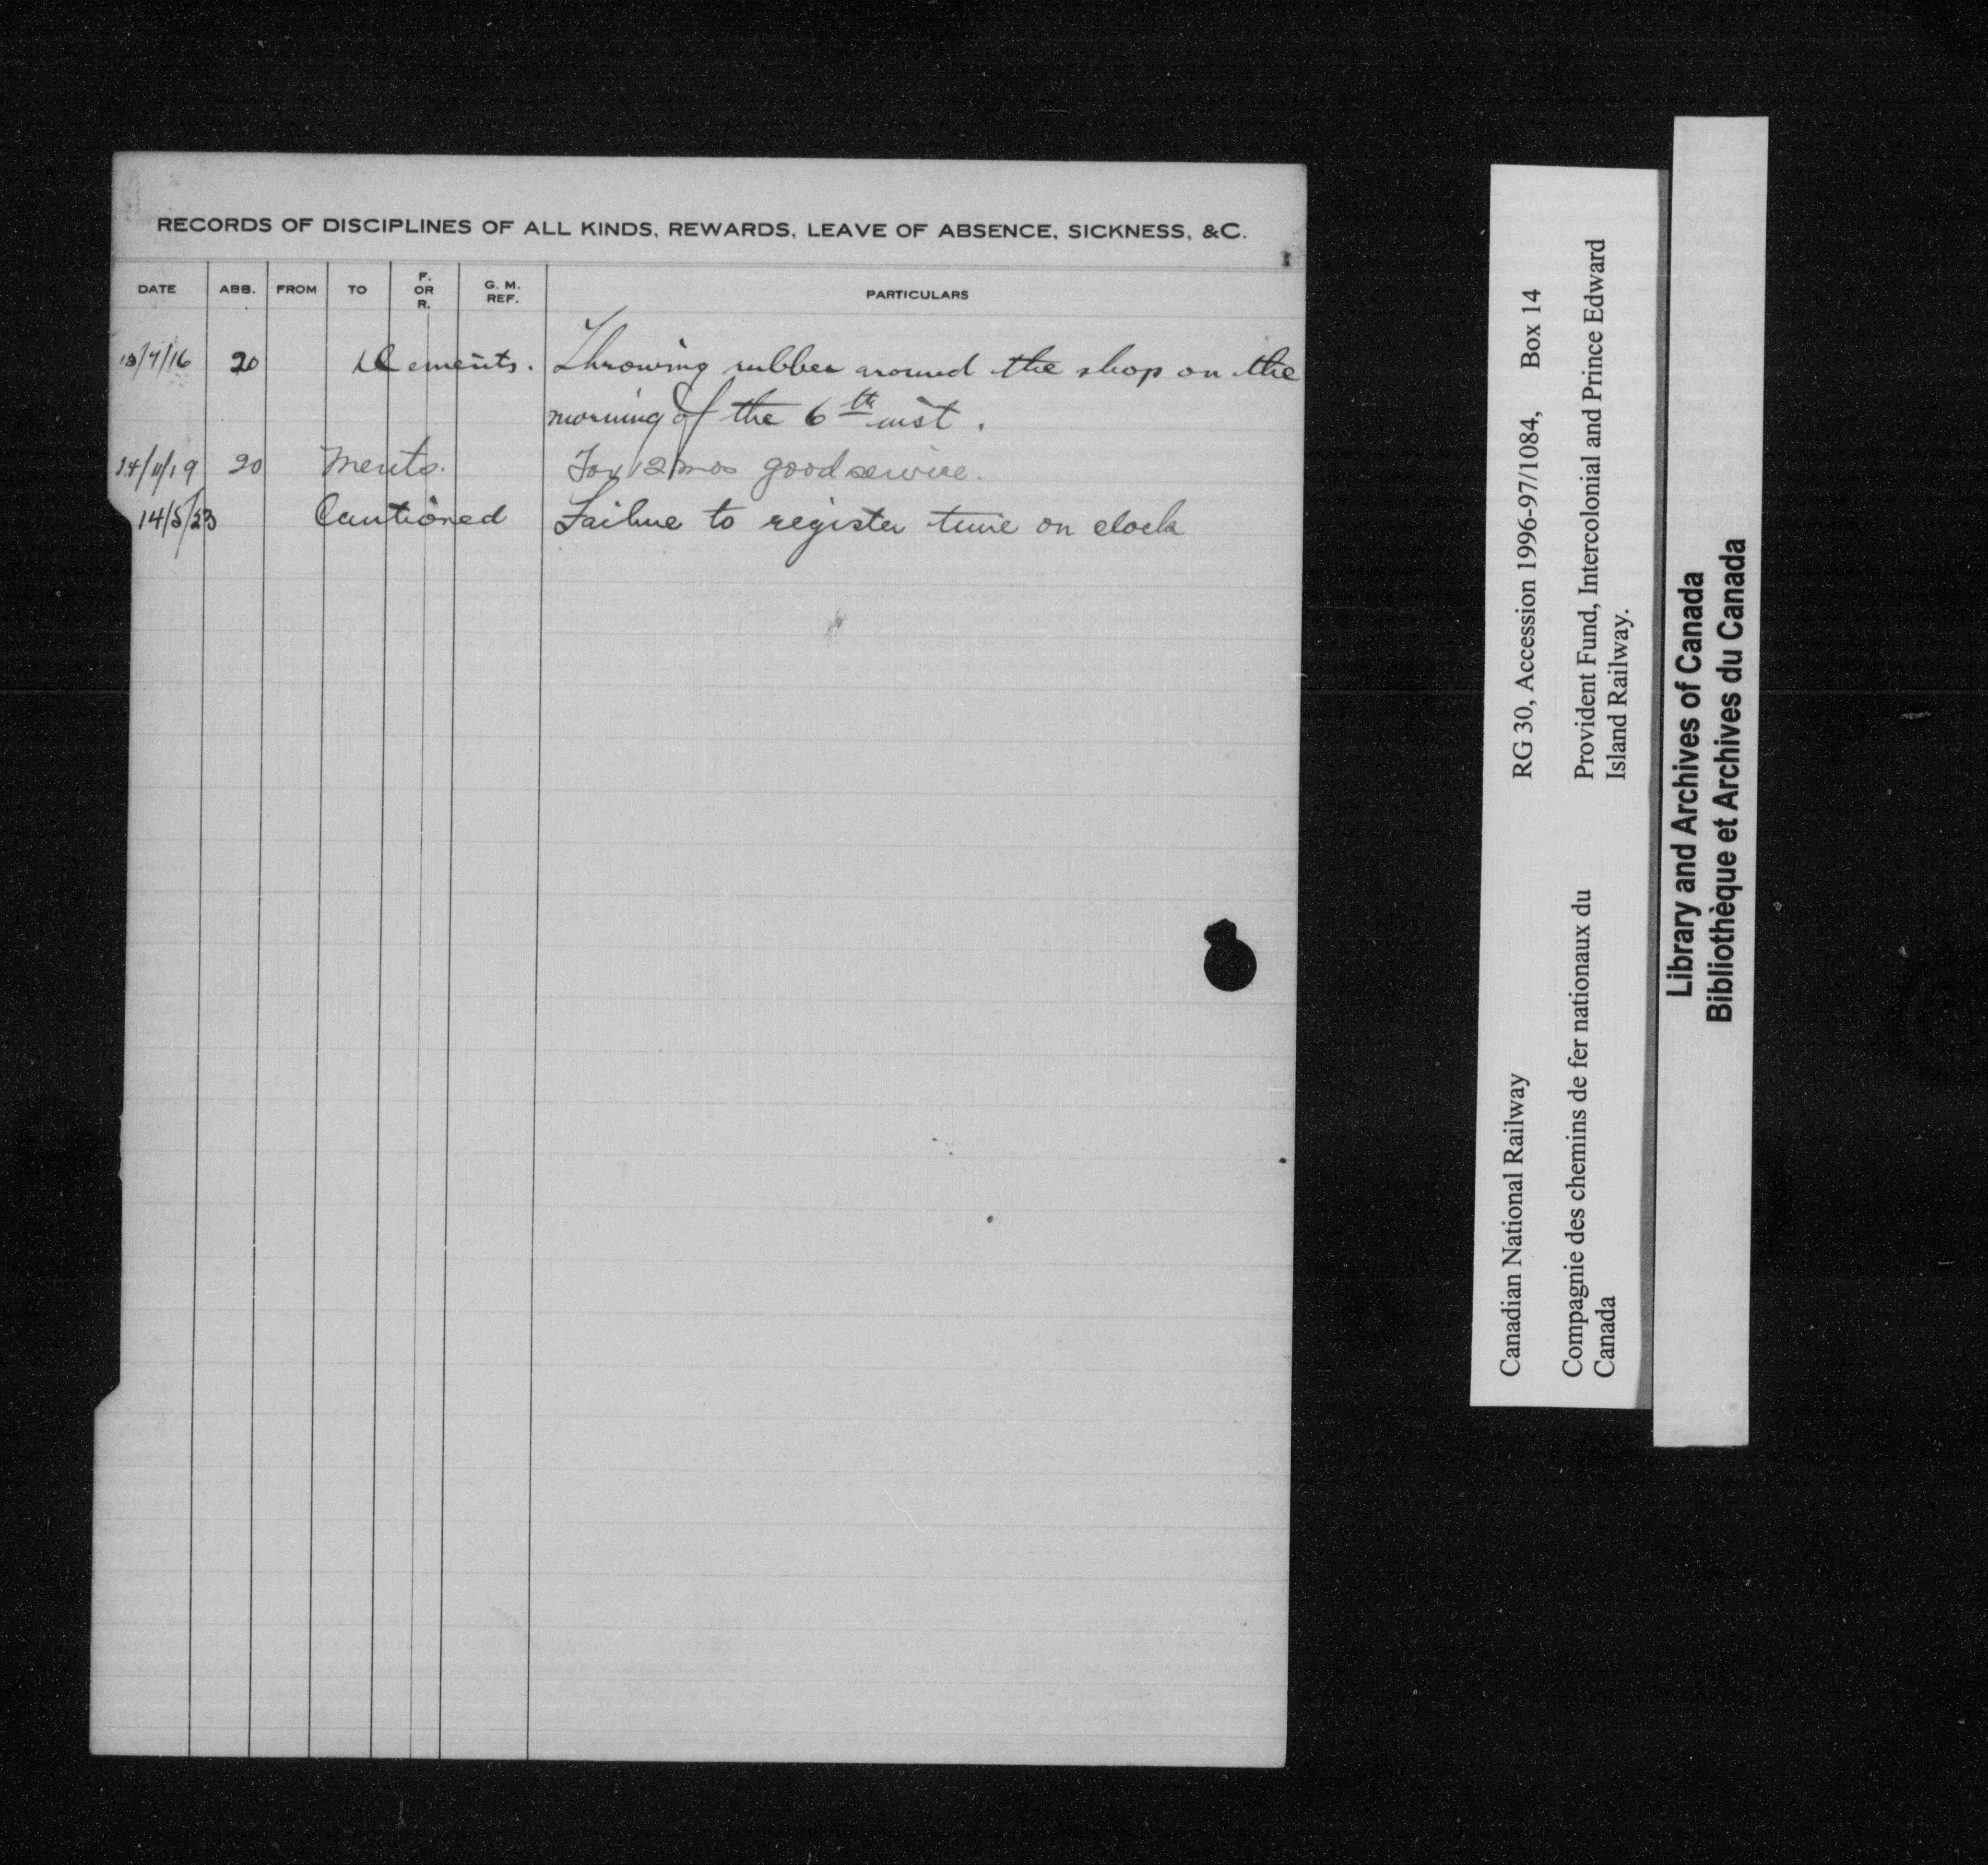 RECORDS OF DISCIPLINES OF ALL KINDS, REWARDS, LEAVE OF ABSENCE, SICKNESS, &C.
DATE ABB. FROM TO F. OR R. G. M. REF. PARTICULARS
13/7/16 20 Demerits. Throwing rubber around the shop on the
morning of the 6th inst.
14/11/19 20 Merits. For 12 mos good service.
14/5/23 Cautioned Failure to register time on clock
Canadian National Railway RG 30, Accession 1996-97/1084, Box 14
Compagnie des chemins de fer nationaux du
Canada
Provident Fund, Intercolonial and Prince Edward
Island Railway.
Library and Archives of Canada
Bibliothèque et Archives du Canada